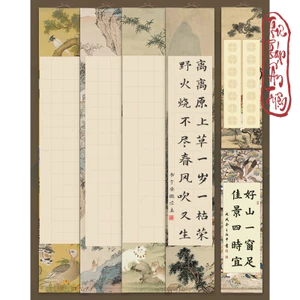 好山一窗足
佳景四時宜
离离原上草一岁一枯荣
野火烧不尽春风吹又生